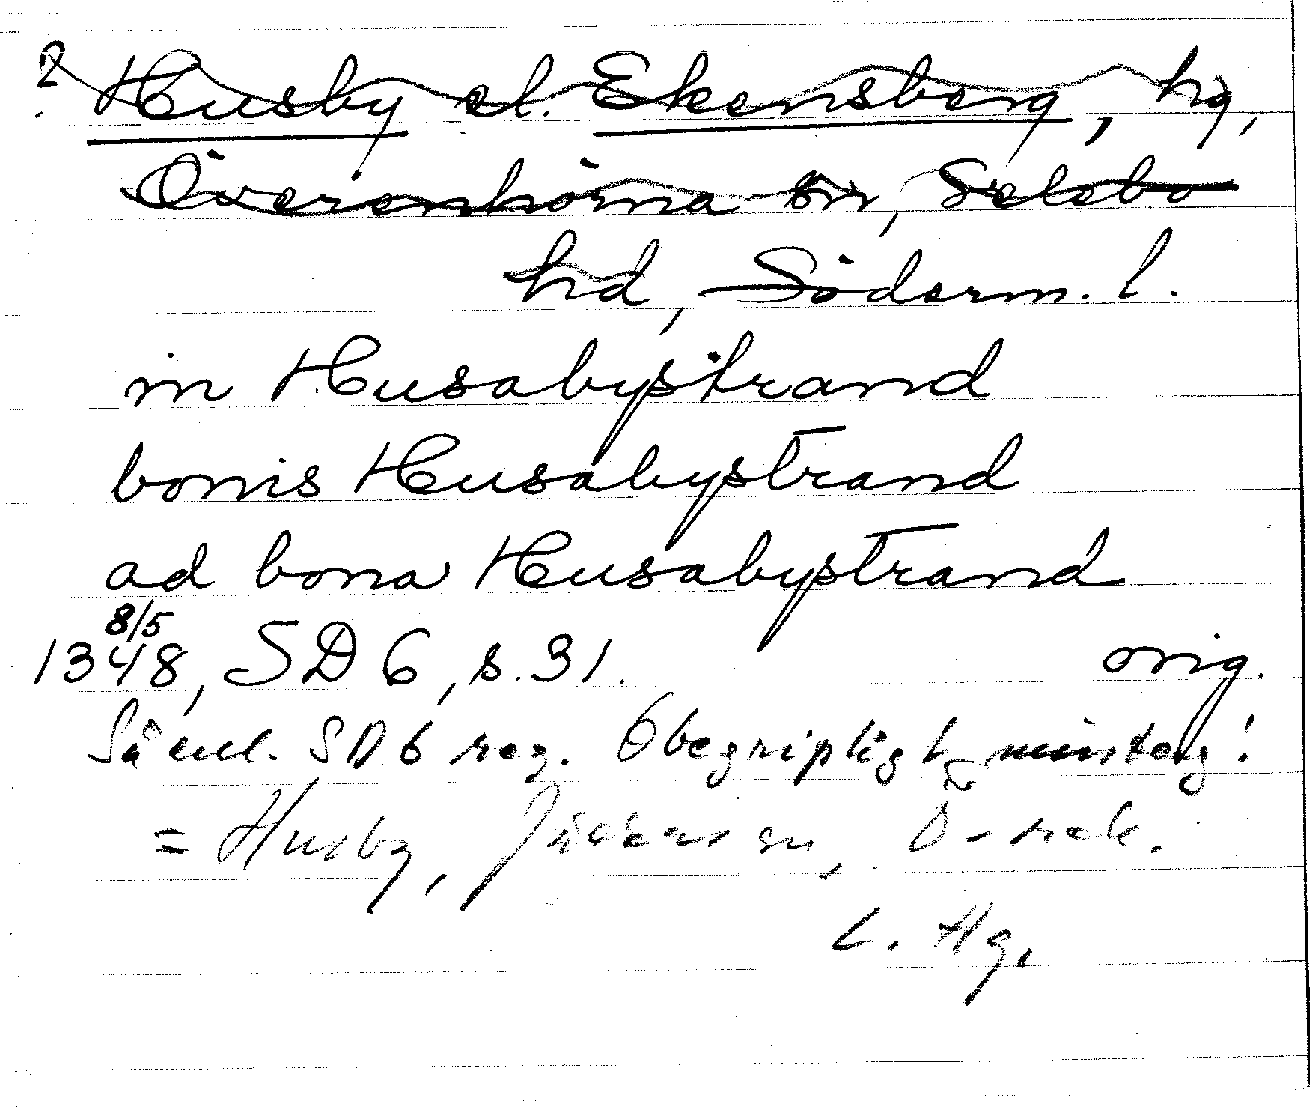 ? Husby el. Ekensberg, hg,
Överenhörna sn, Selebo
hd, Söderm. l.
in Husabystrand
bonis Husabystrand
ad bona Husabystrand
8/5
1348, SD 6, s. 31. orig.
Så enl. SD 6 reg. Obegripligt misstag!
= Husby, sn,
C. Hg.